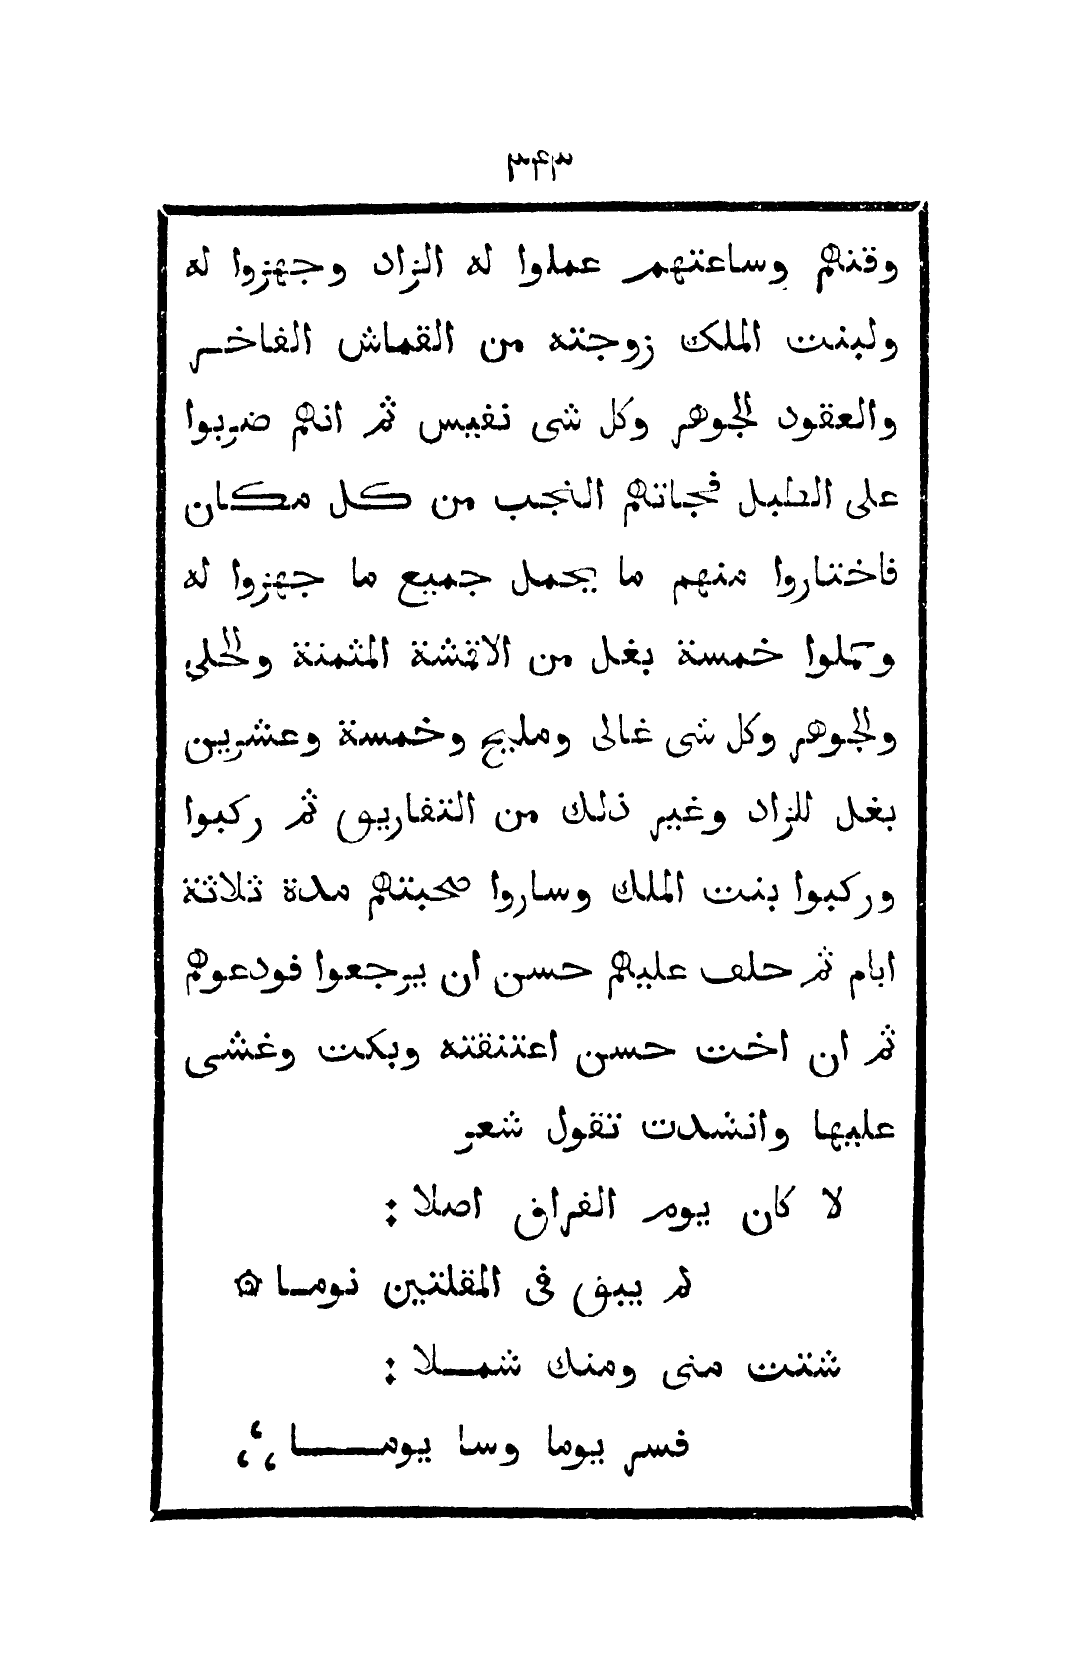 ٣٤٣
وقتهم وساعتهم عملوا له الزاد وجهزوا له
ولبنت الملك زوجته من القماش الفاخر
والعقود الجوهر وكل شى نفيس ثم انهم ضربوا
على الطبل فجاتهم النجب من كل مكان
فاختاروا منهم ما يحمل جميع ما جهزوا له
وحملوا خمسة بغل من الاقمشة المثمنة والحلي
والجوهر وكل شى غالى ومليح وخمسة وعشرين
بغل للزاد وغير ذلك من التفاريق ثم ركبوا
وركبوا بنت الملك وساروا صحبتهم مدة ثلاثة
ايام ثم حلف عليهم حسن ان يرجعوا فودعوهم
ثم ان اخت حسن اعتنقته وبكت وغشى
عليها وانشدت تقول شعر
لا كان يوم الفراق اصلا :
لم يبق فى المقلتين نوما ۞
شتت منى ومنك شملا :
فسر يوما وسا يوما